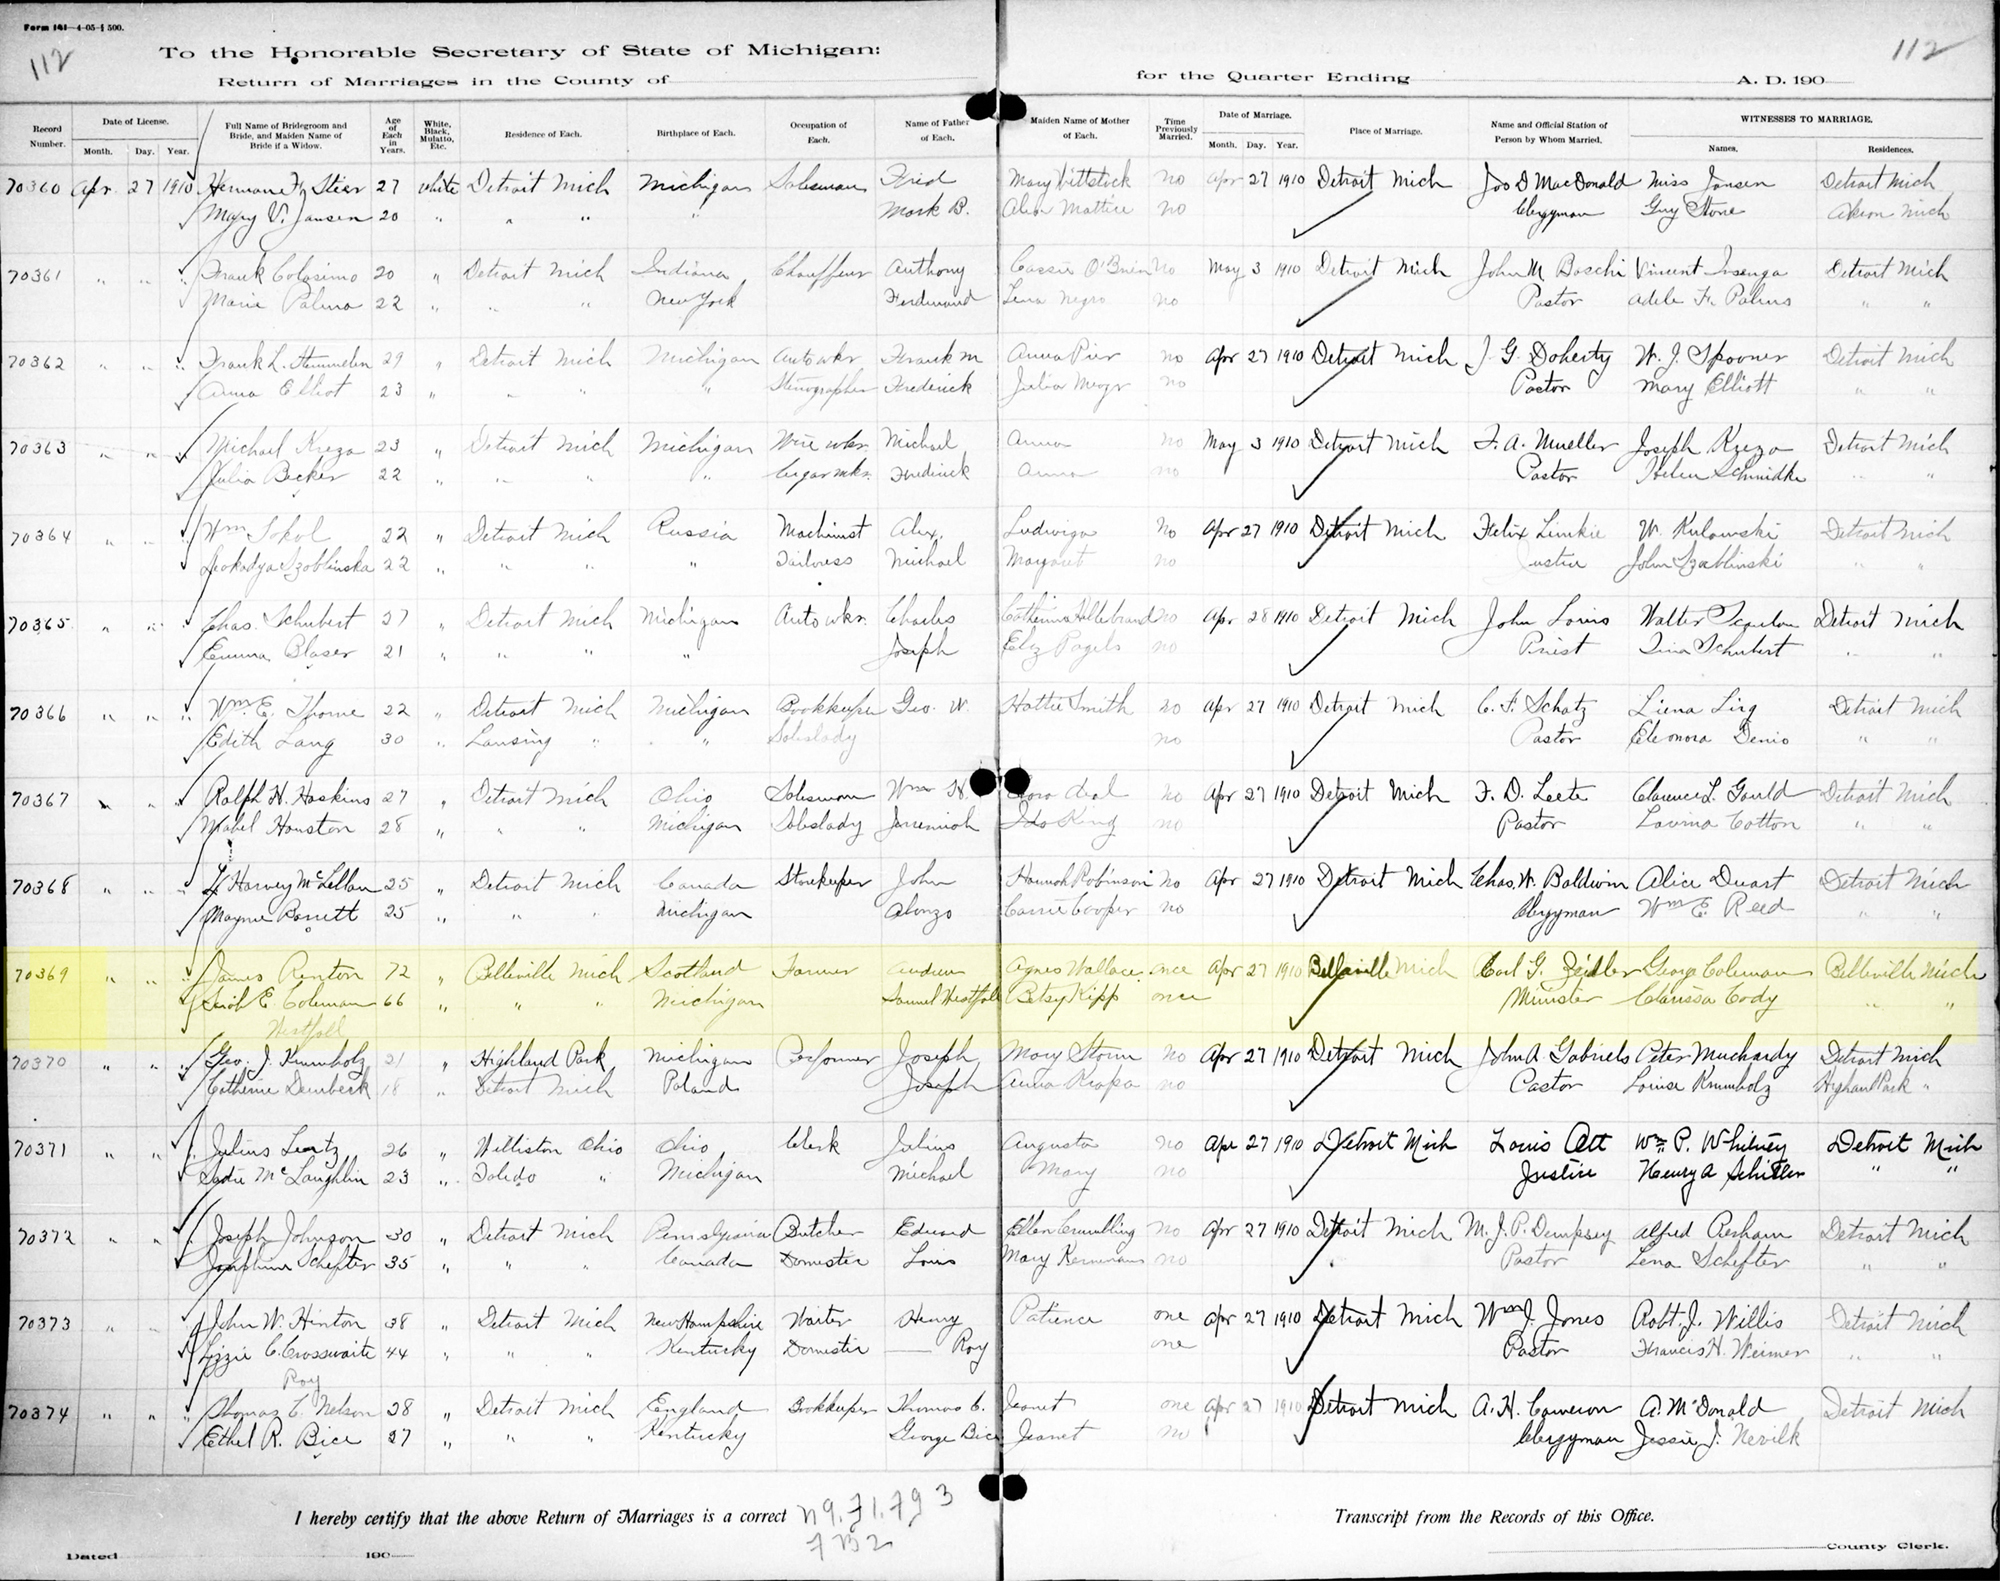 Form 161—4-05—1500.
112 112
To the Honorable Secretary of State of Michigan:
Return of Marriages in the County of for the Quarter Ending A. D. 190
Record Number. Date of License. Month. Day. Year. Full Name of Bridegroom and Bride, and Maiden Name of Bride if a Widow. Age of Each in Years. White, Black, Mulatto, Etc. Residence of Each. Birthplace of Each. Occupation of Each. Name of Father of Each. Maiden Name of Mother of Each. Time Previously Married. Date of Marriage. Month. Day. Year. Place of Marriage. Name and Official Station of Person by Whom Married. WITNESSES TO MARRIAGE. Names. Residences.
70360 Apr 27 1910 Herman Stier 27 white Detroit Mich Michigan Salesman Fred Mary Wittstock no Apr 27 1910 Detroit Mich Jos D MacDonald Miss Jansen Detroit Mich
Mary V. Jansen 20 " " " " Mark B. Alice Mattice no Clergyman Guy Stone Akron Mich
70361 " " " Frank Colosimo 20 " Detroit Mich Indiana Chauffeur Anthony Cassie O'Brien no May 3 1910 Detroit Mich John M Boschi Vincent Detroit Mich
Marie Palma 22 " " " New York Ferdinand Lena Negro no Pastor Adele Fr. Palms " "
70362 " " " Frank L. 29 " Detroit Mich Michigan Auto wkr Frank M Anna Pier no Apr 27 1910 Detroit Mich J. G. Doherty W. J. Spooner Detroit Mich
Anna Elliot 23 " " " " Stenographer Frederick Julia no Pastor Mary Elliott " "
70363 " " " Michael Kreza 23 " Detroit Mich Michigan Wire wkr Michael Anna no May 3 1910 Detroit Mich F. A. Mueller Joseph Kreza Detroit Mich
Julia Becker 22 " " " " Cigar mkr. Frederick Anna no Pastor Helen Schmidke " "
70364 " " " Wm Sokol 22 " Detroit Mich Russia Machinist Alex. Ludwiga no Apr 27 1910 Detroit Mich Felix Limkie W. Kulawski Detroit Mich
Leokadya Szoblinska 22 " " " " Tailoress Michael Margaret no Justice John Szablinski " "
70365 " " " Chas. Schubert 27 " Detroit Mich Michigan Auto wkr. Charles Catherine Hillebrand no Apr 28 1910 Detroit Mich John Louis Walter Scanlon Detroit Mich
Emma Blaser 21 " " " " Joseph Eliz Pagels no Priest Tina Schubert " "
70366 " " " Wm. E. Thorne 22 " Detroit Mich Michigan Bookkeeper Geo. W. Hattie Smith no Apr 27 1910 Detroit Mich C. F. Schatz Liena Detroit Mich
Edith Lang 30 " Lansing " " Saleslady no Pastor Eleonora Denio " "
70367 " " " Ralph H. Hoskins 27 " Detroit Mich Ohio Salesman Wm H. no Apr 27 1910 Detroit Mich F. D. Leete Clarence L. Gould Detroit Mich
Mabel Houston 28 " " " Michigan Saleslady Jeremiah Ida King no Pastor Lavina Cotton " "
70368 " " " Harvey McLellan 25 " Detroit Mich Canada Storekeeper John Hannah Robinson no Apr 27 1910 Detroit Mich Chas. W. Baldwin Alice Duart Detroit Mich
Mayme 25 " " " Michigan Alonzo Carrie Cooper no Clergyman Wm E. Reed " "
70369 " " " James Renton 72 " Belleville Mich Scotland Farmer Andrew Agnes Wallace once Apr 27 1910 Belleville Mich Carl G. Zeidler George Coleman Belleville Mich
Sarah E. Coleman 66 " " " Michigan Samuel Westfall Betsy Kipp once Minister Clarissa Cody " "
Westfall
70370 " " " Geo. J. Krumholz 21 " Highland Park Michigan Performer Joseph Mary Storm no Apr 27 1910 Detroit Mich John A Gabriels Peter Muchardy Detroit Mich
Catherine Dembeck 18 " Detroit Mich Poland Joseph Anna Kropa no Pastor Louise Krumholz Highland Park "
70371 " " " Julius Lentz 26 " Williston Ohio Ohio Clerk Julius Augusta no Apr 27 1910 Detroit Mich Louis Ott Wm P. Whitney Detroit Mich
Sadie McLaughlin 23 " Toledo " Michigan Michael Mary no Justice Henry A Schiller " "
70372 " " " Joseph Johnson 30 " Detroit Mich Pennsylvania Butcher Edward Ellen Crumbling no Apr 27 1910 Detroit Mich M. J. P. Dempsey Alfred Detroit Mich
Josephine Schefter 35 " " " Canada Domestic Louis Mary no Pastor Lena Schefter " "
70373 " " " John W. Hinton 38 " Detroit Mich New Hampshire Waiter Henry Patience one Apr 27 1910 Detroit Mich Wm J. Jones Robt. J. Willis Detroit Mich
Lizzie C. Crosswaite 44 " " " Kentucky Domestic — Roy one Pastor Francis H. Weimer " "
Roy
70374 " " " Thomas C. Nelson 38 " Detroit Mich England Bookkeeper Thomas C. Jeanet one Apr 27 1910 Detroit Mich A. H. Cameron A. McDonald Detroit Mich
Ethel R. Bice 27 " " " Kentucky George Bice Jeanet no Clergyman Jessie J. Nevilk
I hereby certify that the above Return of Marriages is a correct Transcript from the Records of this Office.
Dated 190 County Clerk.